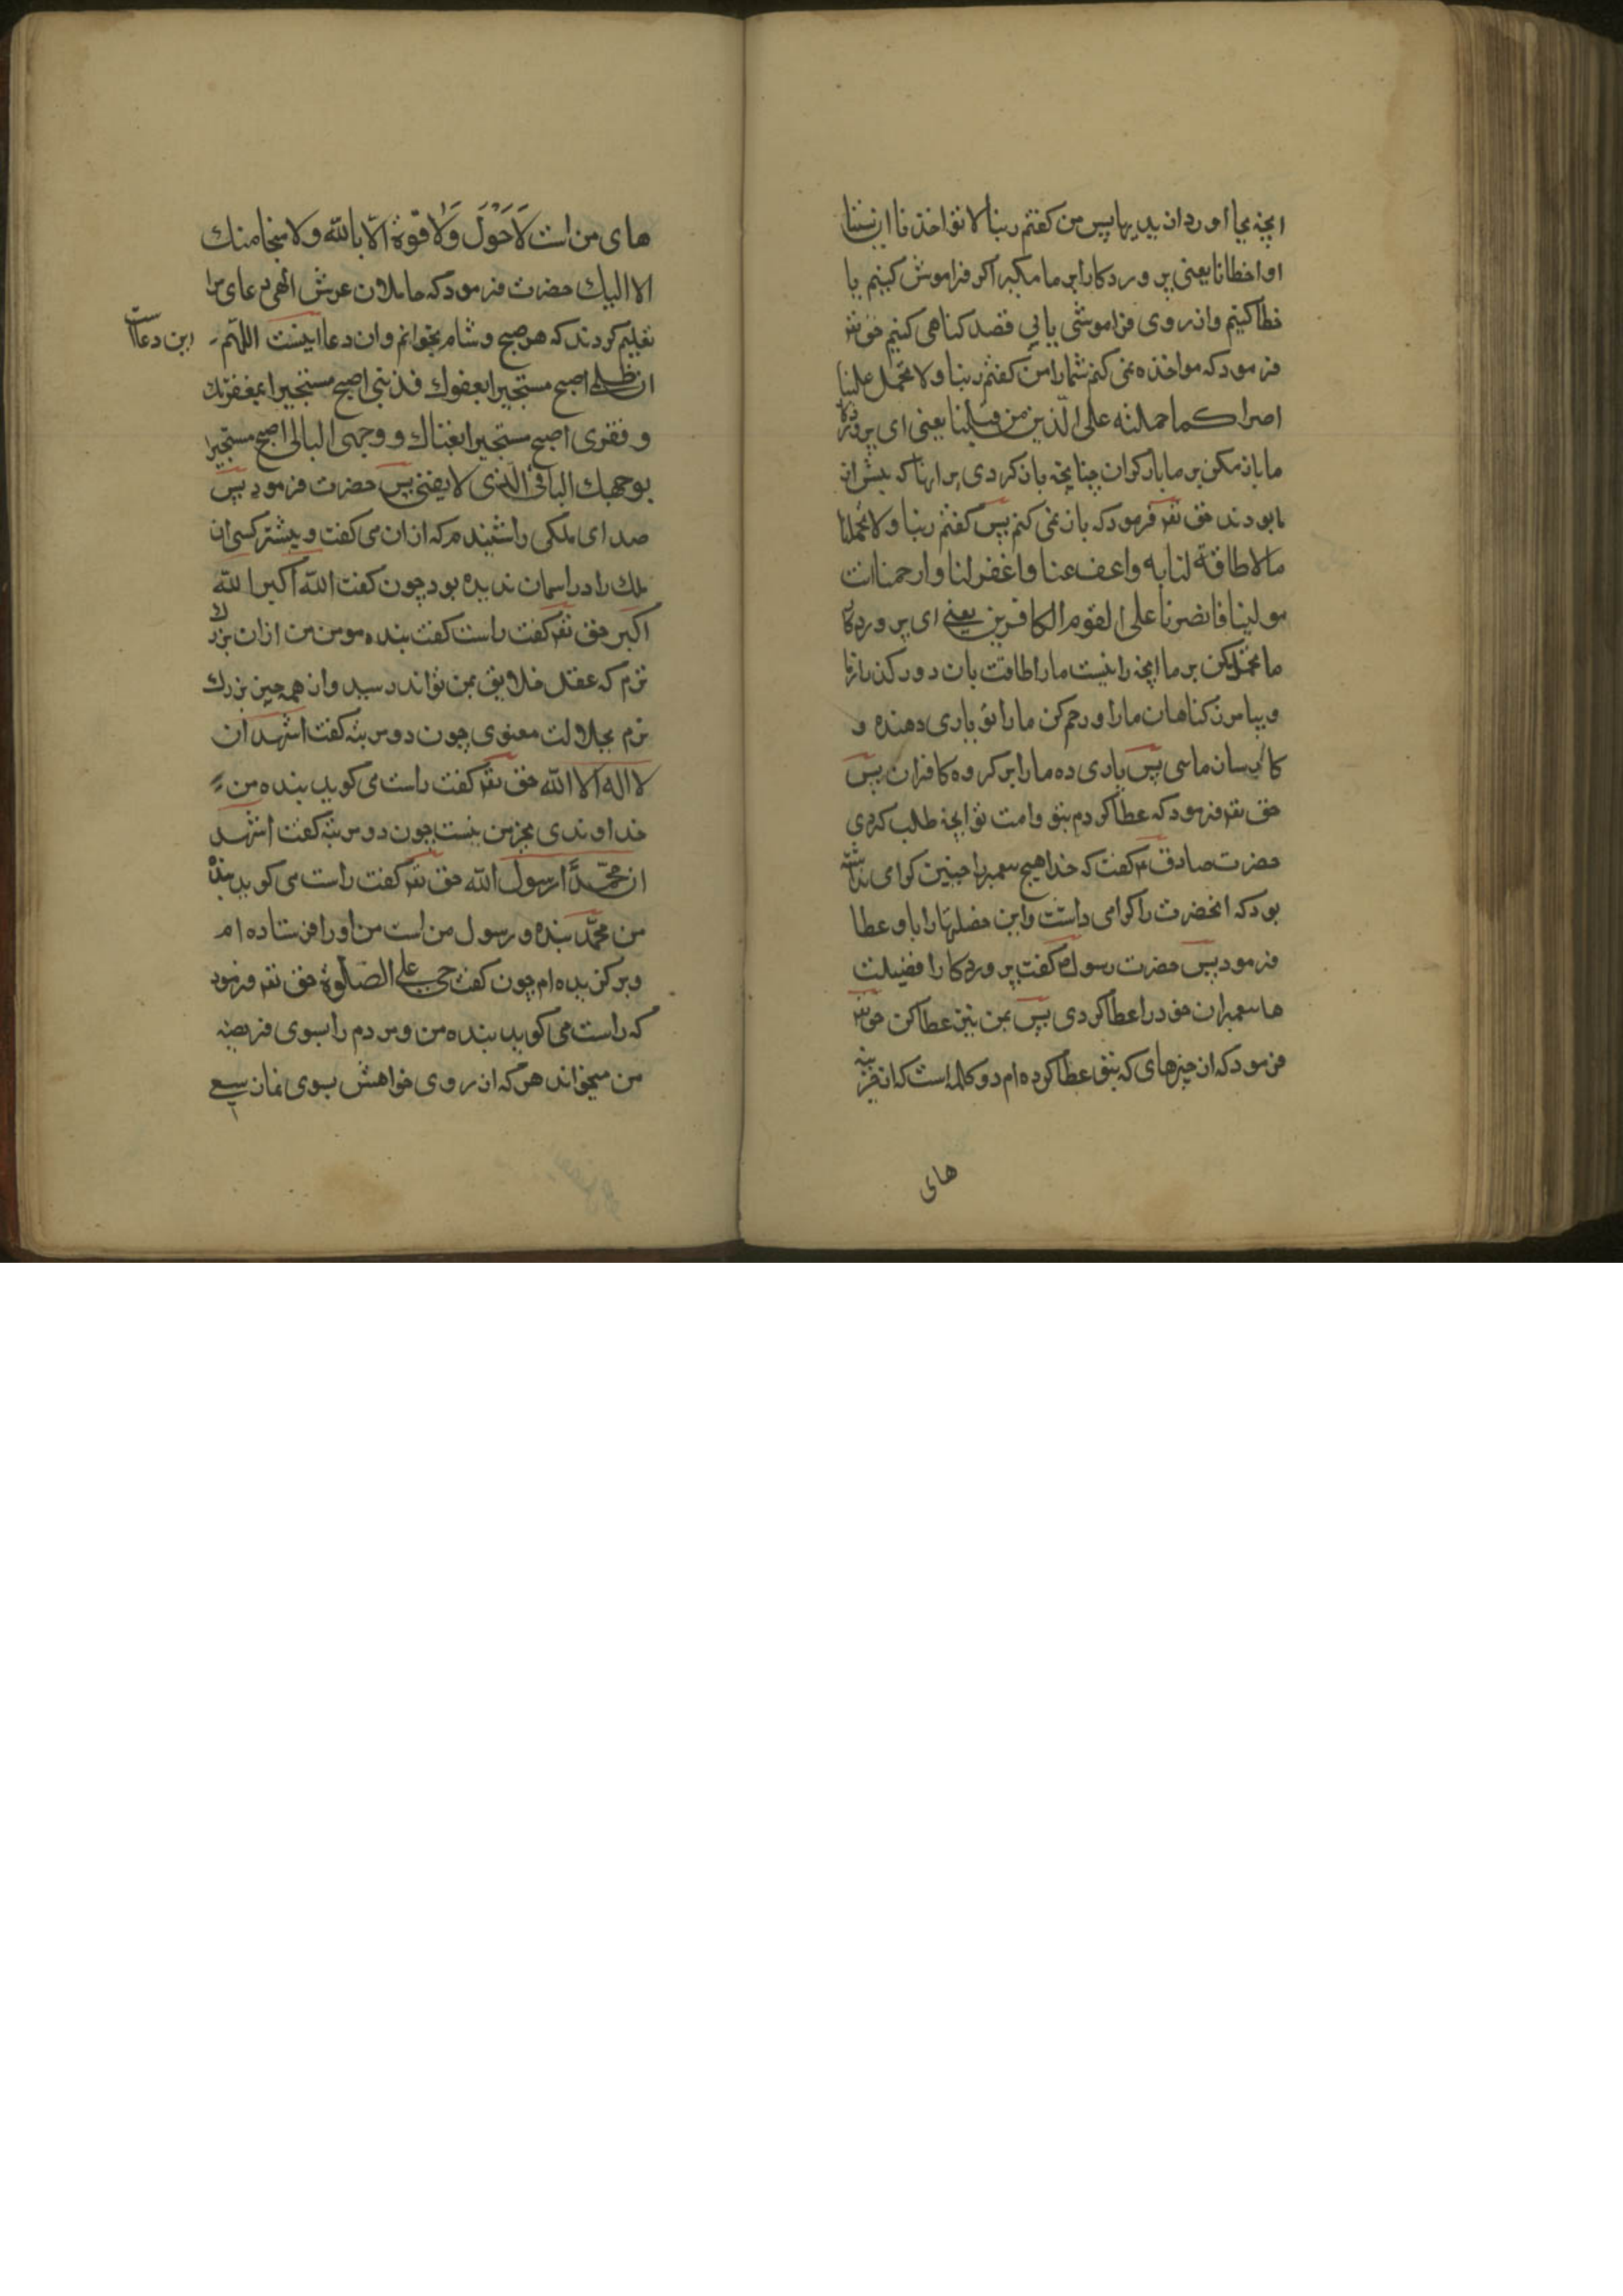 انچه بجا اورد از بدیها پس من کفتم ربنا لا تواخذنا ان نسینا
او اخطانا یعنی پروردکارا بر ما مکیر اکر فراموش کنیم یا
خطا کنیم و از روی فراموشی یا بی قصد کناهی کنیم حق تع
فرمود که مواخذه نمی کنم شما را من کفتم ربنا ولا تحمل علینا
اصرا کما حملته علی الذین من قبلنا یعنی ای پروردکار
ما بار مکن بر ما بار کران چنانچه بار کردی بر انها که پیش از
ما بودند حق تعر فرمود که بار نمی کنم پس کفتم ربنا ولا تحملنا
مالا طاقة لنا به واعف عنا واغفر لنا وارحمنا انت
مولینا فانصرنا علی القوم الکافرین یعنی ای پروردکار
ما تحمیل مکن بر ما انچه را نیست ما را طاقت بان دور کن از ما
و بیامرز کناهان ما را و رحم کن ما را تو یاری دهنده و
کارسان ماسی پس یاری ده ما را بر کروه کافران پس
حق تعر فرمود که عطا کردم بتو و امت تو انچه طلب کردی
حضرت صادق ع کفت که خدا هیچ پیغمبر را چنین کرامی نداشته
بود که انحضرت را کرامی داشت و این خصلتها را باو عطا
فرمود پس حضرت رسول ص کفت پروردکارا فضیلت
ها پیغمبران خود را عطا کردی پس بمن نیز عطا کن حق تع
فرمود که از چیزهای که بتو عطا کرده ام دو کلمه است که از خزینه
های
های من است لَا حَوْلَ وَلَا قوّة الّا بالله ولا منجا منك
الا الیك حضرت فرمود که حاملان عرش الهی دعای مرا
تعلیم کردند که هر صبح و شام بخوانم و ان دعا اینست اللهّم
این دعا است
ان ظلمی اصبح مستجیرا بعفوك فذنبی اصبح مستجیرا بمغفرتك
و فقری اصبح مستجیرا بغناك و وجهی البالی اصبح مستجیرا
بوجهك الباقی الذی لا یفنی پس حضرت فرمود پس
صدای ملکی را شنیدم که اذان می کفت و پیشتر کسی ان
ملك را در اسمان ندیده بود چون کفت الله اکبر الله
اکبر حق تعر کفت راست کفت بنده مومن من ازان بزرك
ترم که عقل خلایق بمن تواند رسید و از همه چیز بزرك
ترم بجلالت معنوی چون دو مرتبه کفت اشهد ان
لا اله الا الله حق تعر کفت راست می کوید بنده من
خداوندی بجز من نیست چون دو مرتبه کفت اشهد
ان محمّدًا رسول الله حق تعر کفت راست می کوید بنده
من محمّد بنده و رسول من است من او را فرستاده ام
و برکزیده ام چون کفت حی علی الصلوة حق تعر فرمود
که راست می کوید بنده من و مردم را بسوی فریضه
من میخواند هر که از روی خواهش بسوی نماز سعی